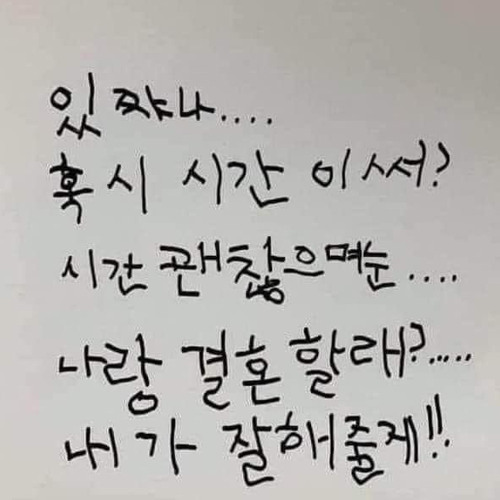 있쨔나....
혹시 시간 이쒀?
시간 괜찮으면눈....
나랑 결혼 할래?.....
내가 잘해줄게!!